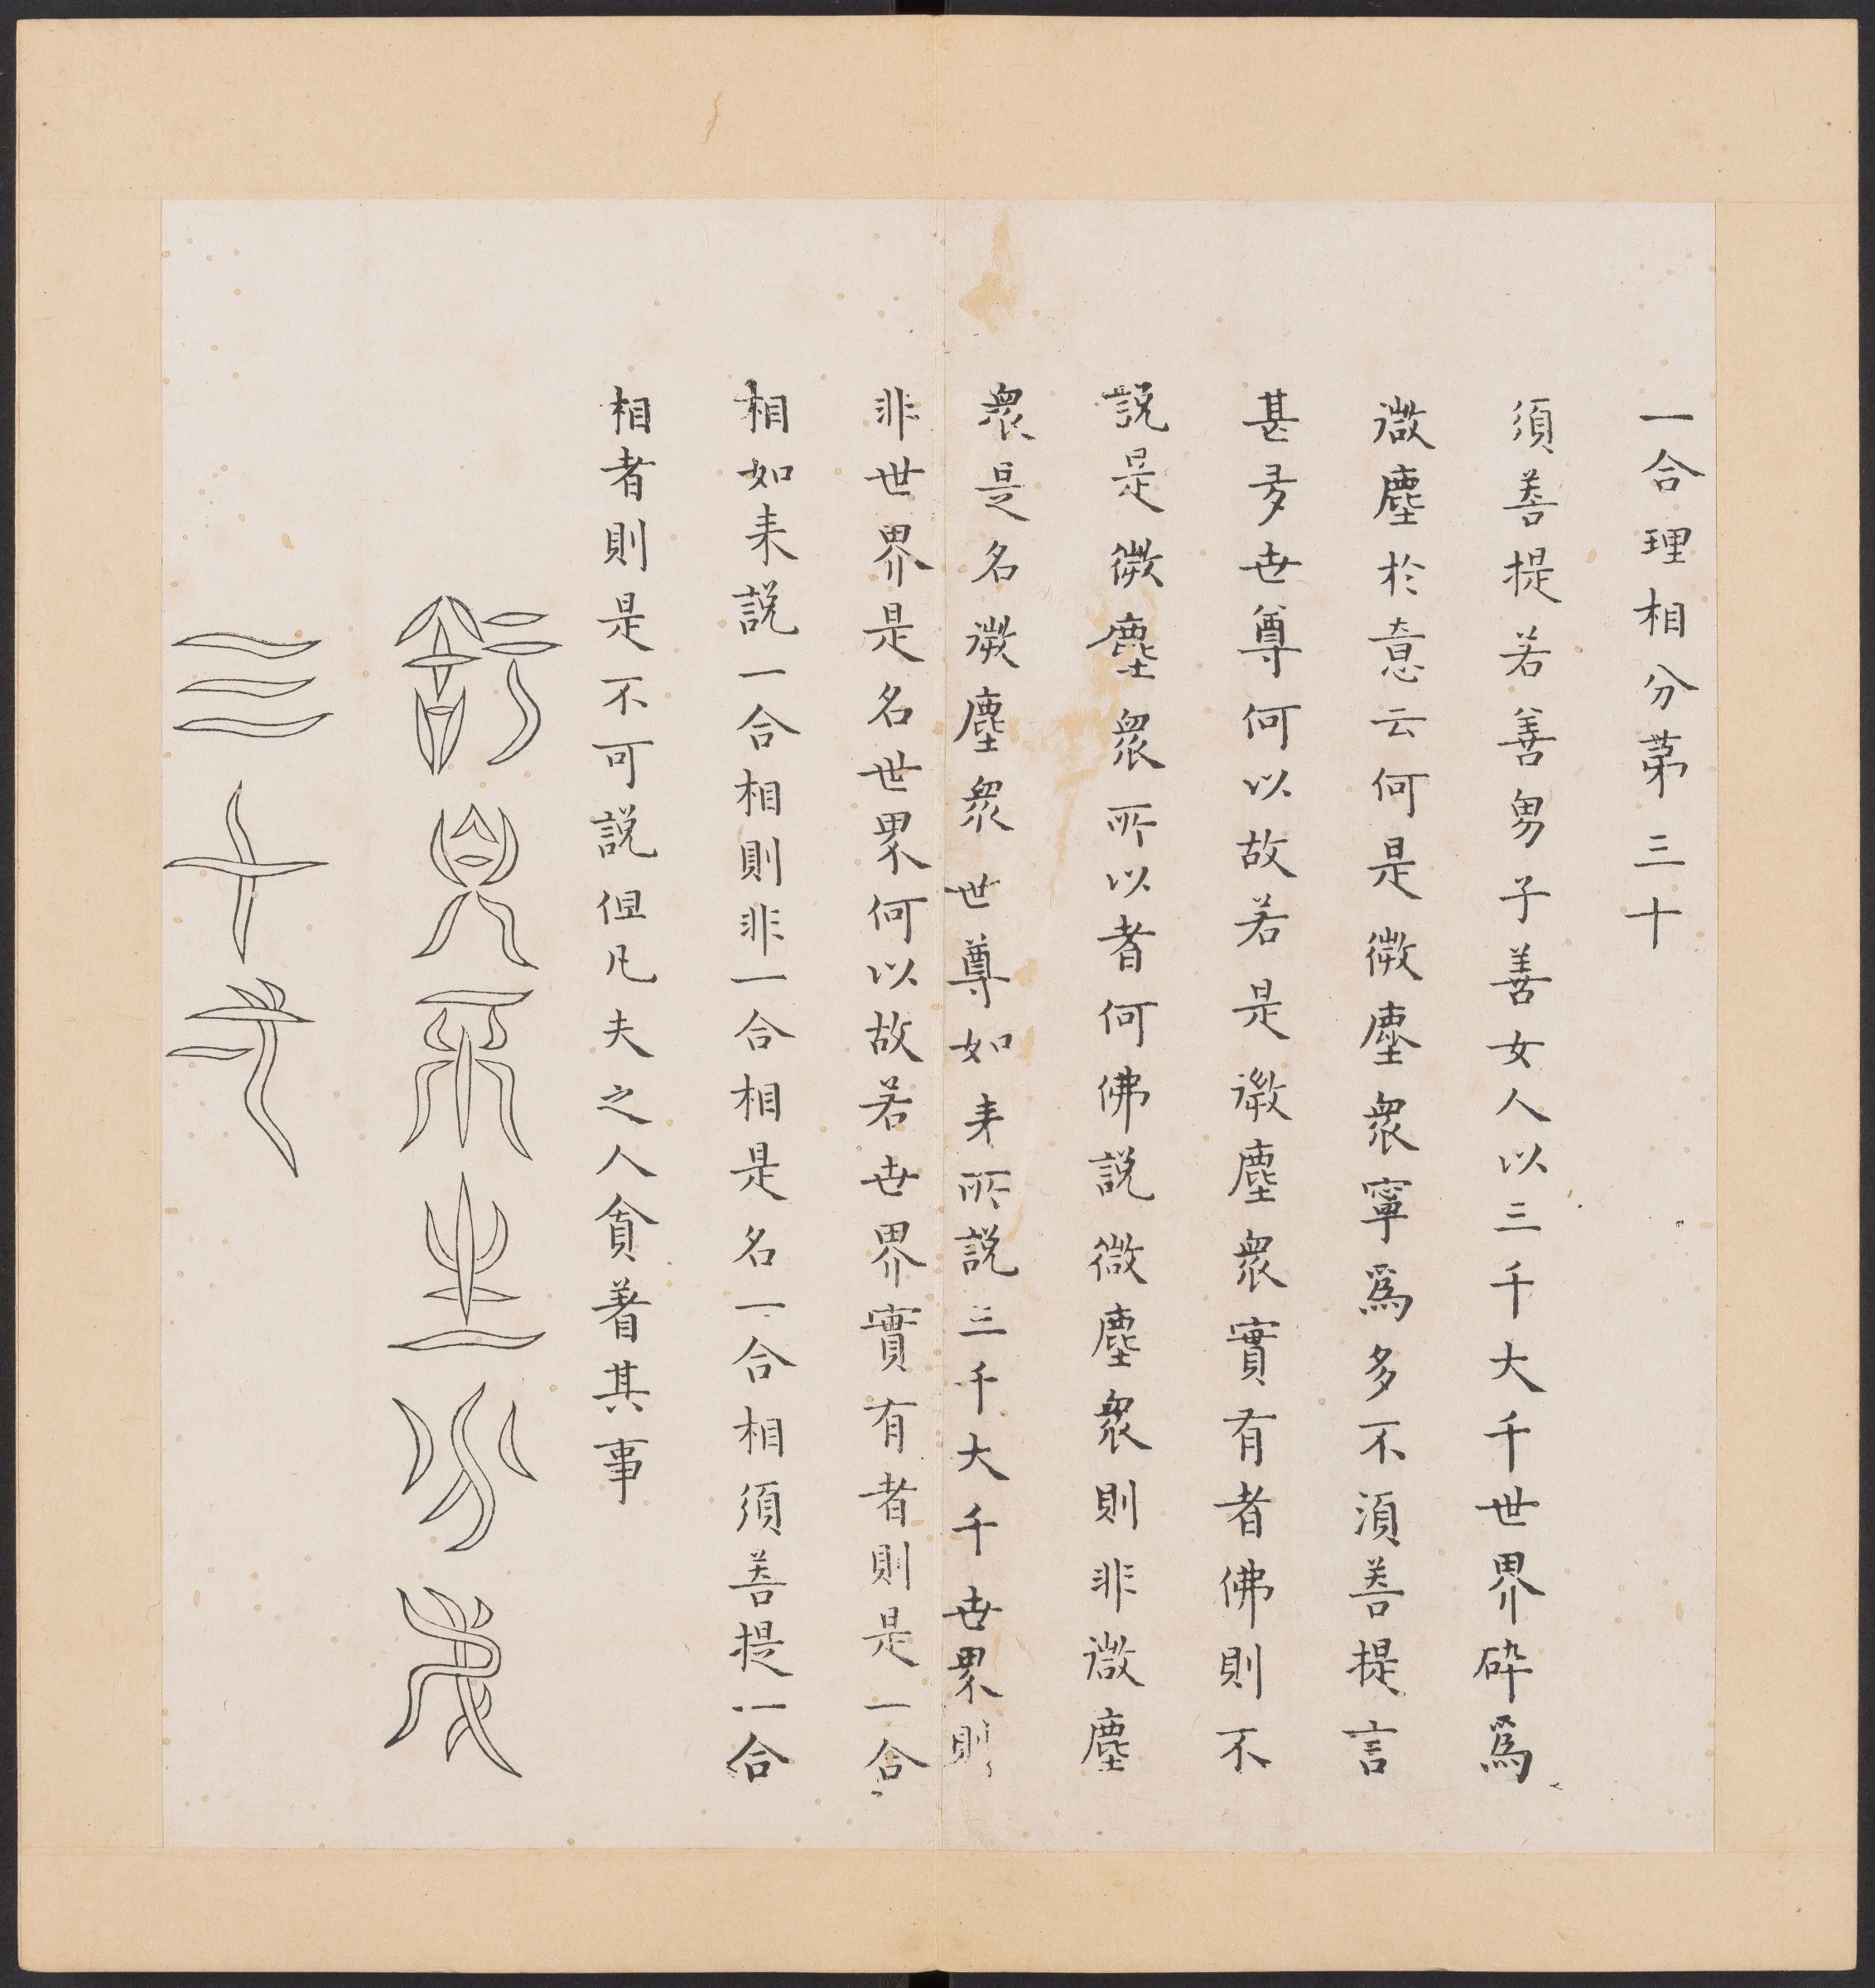 一合理相分第三十
須菩提若善男子善女人以三千大千世界碎爲
微塵於意云何是微塵衆寧爲多不須菩提言
甚多世尊何以故若是微塵衆實有者佛則不
說是微塵衆所以者何佛說微塵衆則非微塵
衆是名微塵衆世尊如来所說三千大千世界則
非世界是名世界何以故若世界實有者則是一合
相如来說一合相則非一合相是名一合相須菩提一合
相者則是不可說但凡夫之人貪著其事
知見不生分第
三十弌